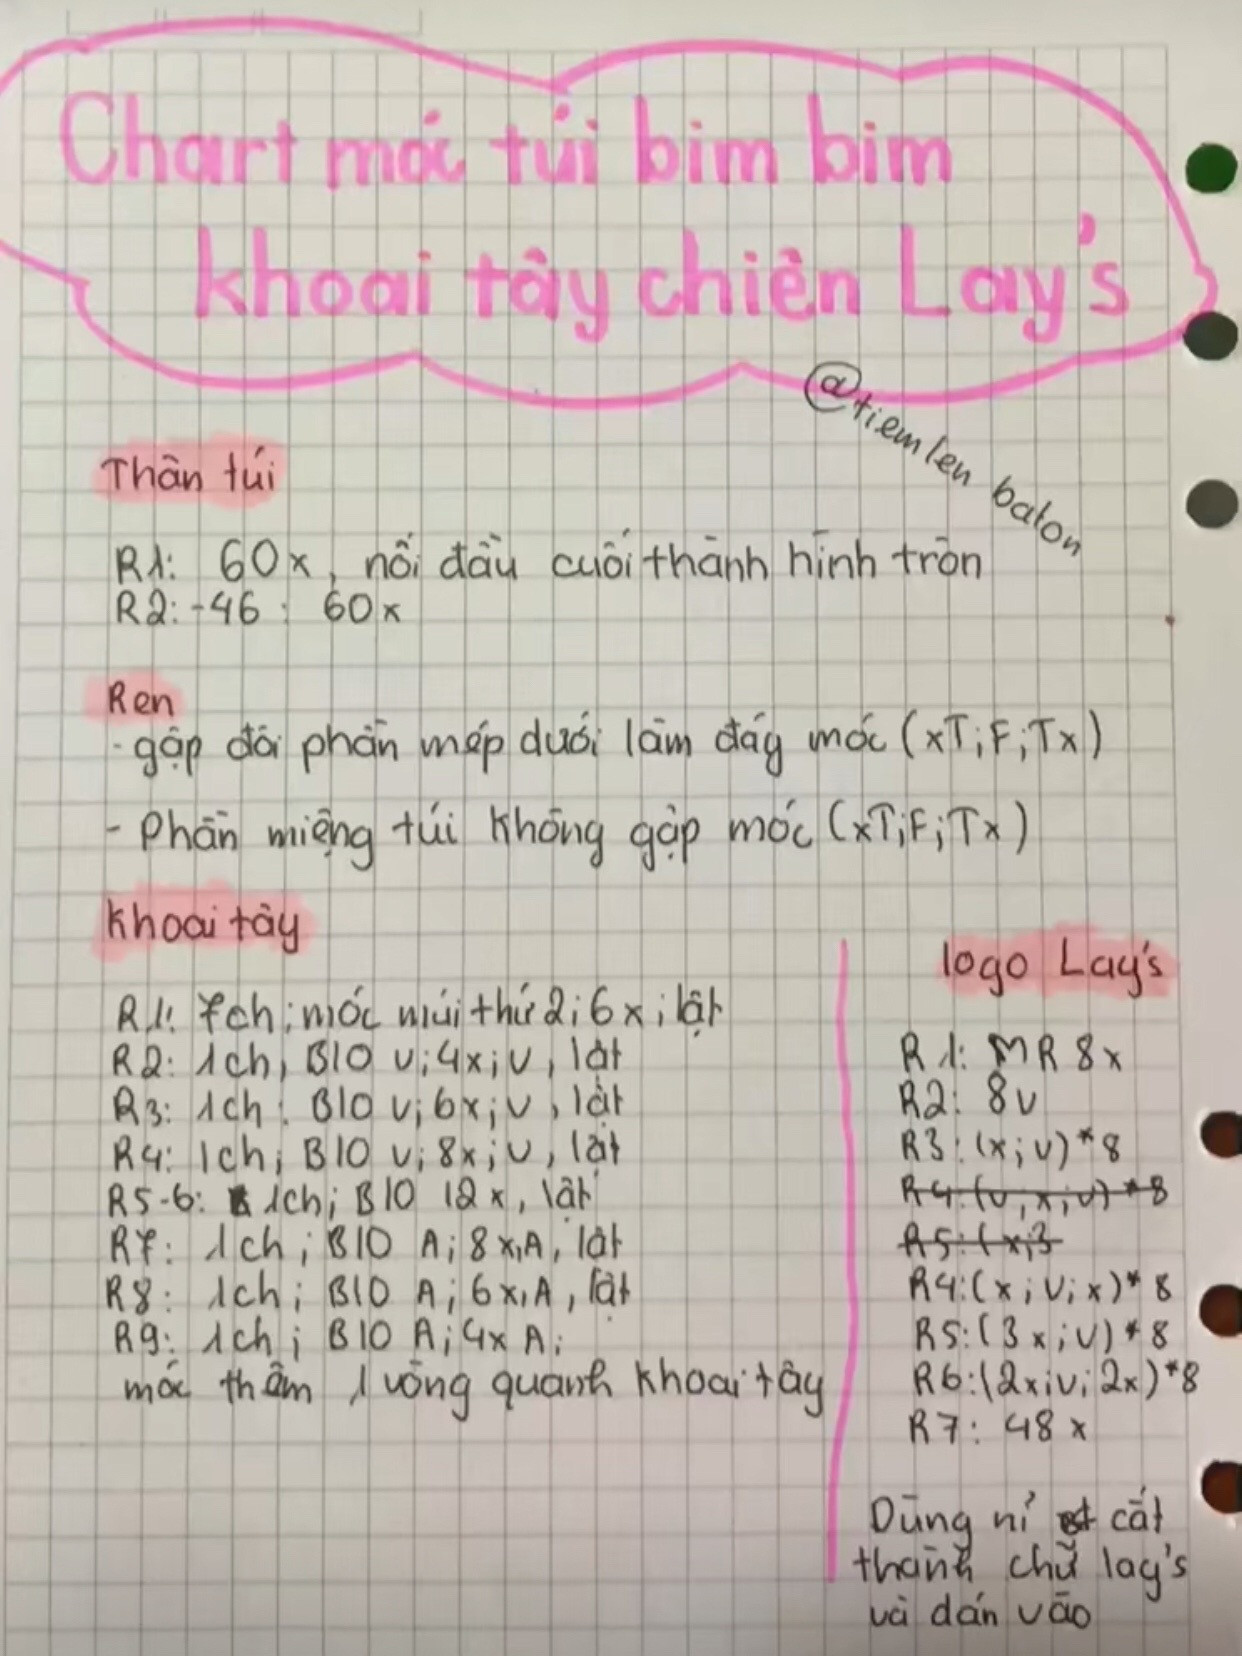 Chart móc túi bim bim
khoai tây chiên Lay's
@tiemlen balon
Thân túi
R1: 60x, nối đầu cuối thành hình tròn
R2: -46 : 60x
Ren
- gập đôi phần mép dưới làm đáy móc (xT;F;Tx)
- Phần miệng túi không gập móc (xT;F;Tx)
Khoai tây
R1: 7ch; móc mũi thứ 2; 6x; lật
R2: 1ch; BLO V; 4x; V, lật
R3: 1ch: BLO V; 6x; V, lật
R4: 1ch; BLO V; 8x; V, lật
R5-6: 1ch; BLO 12x, lật
R7: 1ch; BLO A; 8x, A, lật
R8: 1ch; BLO A; 6x, A, lật
R9: 1ch; BLO A; 4x A;
móc thêm 1 vòng quanh khoai tây
logo Lay's
R1: MR 8x
R2: 8V
R3: (x; V)*8
R4: (V, x; V)*8
R5: (x;3
R4: (x; V; x)*8
R5: (3x; V)*8
R6: (2x; V; 2x)*8
R7: 48x
Dùng nỉ cắt
thành chữ lay's
và dán vào